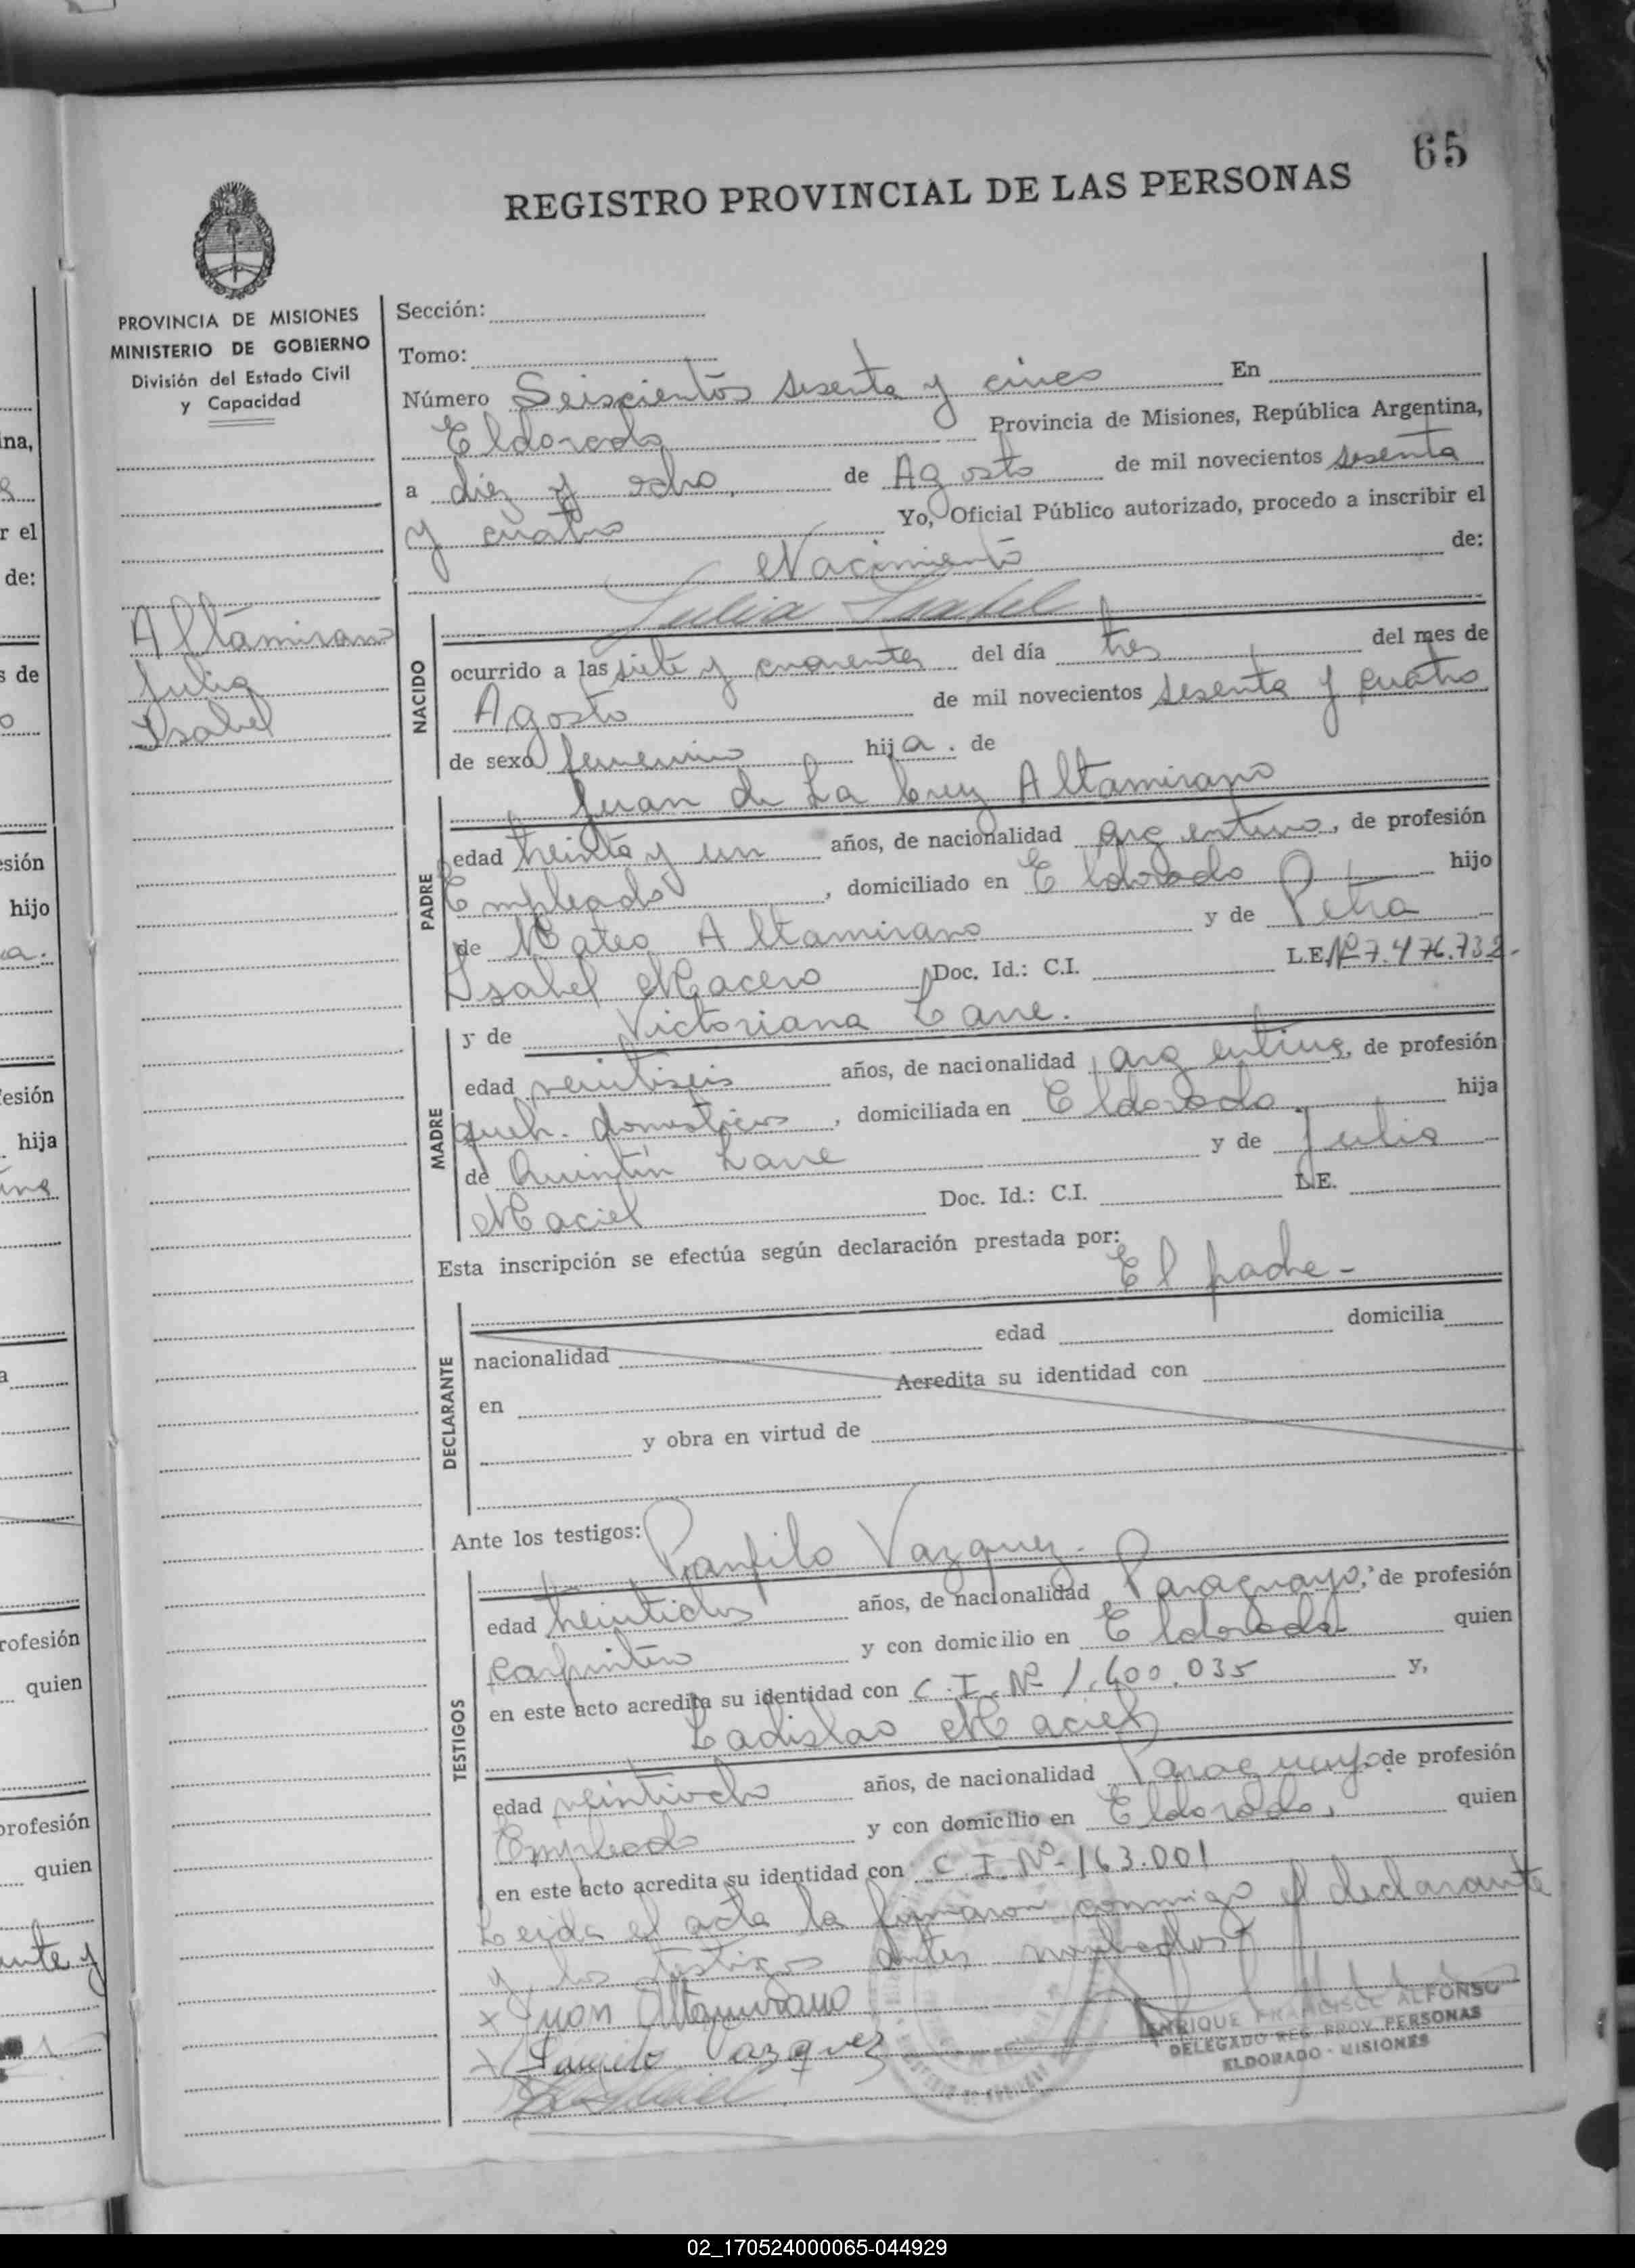 65
REGISTRO PROVINCIAL DE LAS PERSONAS
PROVINCIA DE MISIONES
MINISTERIO DE GOBIERNO
División del Estado Civil
y Capacidad
Altamirano
Julia
Isabel
Sección:
Tomo:
Número Seiscientos sesenta y cinco En
Eldorado Provincia de Misiones, República Argentina,
a diez y ocho, de Agosto de mil novecientos sesenta
y cuatro Yo, Oficial Público autorizado, procedo a inscribir el
Nacimiento de:
Julia Isabel
NACIDO
ocurrido a las siete y cuarenta del día tres del mes de
Agosto de mil novecientos sesenta y cuatro
de sexo femenino hija. de
Juan de La Cruz Altamirano
PADRE
edad treinta y un años, de nacionalidad argentino, de profesión
Empleado, domiciliado en Eldorado hijo
de Mateo Altamirano y de Petra
Isabel Macero Doc. Id.: C.I. L.E. Nº 7.476.732.-
y de Victoriana Larre.
MADRE
edad veintiseis años, de nacionalidad argentina, de profesión
queh. domesticos, domiciliada en Eldorado. hija
de Quintín Larre y de Julia
Maciel Doc. Id.: C.I. L.E.
Esta inscripción se efectúa según declaración prestada por:
El padre -
DECLARANTE
edad domicilia
nacionalidad
en Acredita su identidad con
y obra en virtud de
Ante los testigos: Panfilo Vazquez.
TESTIGOS
edad treintidos años, de nacionalidad Paraguayo, de profesión
carpintero y con domicilio en Eldorado quien
en este acto acredita su identidad con C.I. Nº 1.400.035 y,
Ladislao Maciel
edad veintiocho años, de nacionalidad Paraguayo de profesión
Empleado y con domicilio en Eldorado, quien
en este acto acredita su identidad con C.I. Nº 163.001
Leida el acta la firmaron conmigo el declarante
y los testigos antes nombrados
x Juan Altamirano
x Panfilo Vazquez
ENRIQUE FRANCISCO ALFONSO
DELEGADO REG. PROV. PERSONAS
ELDORADO - MISIONES
02_170524000065-044929